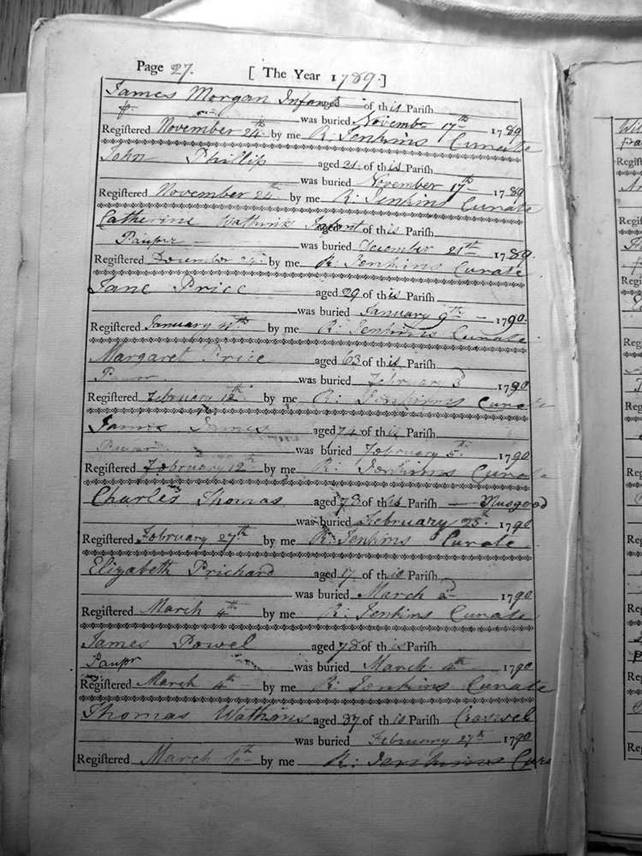 Page 27. [ The Year 1789. ]
James Morgan Infant of this Parish
was buried November 17th 1789
Registered November 24th by me R. Jenkins Curate
John Phillip aged 21 of this Parish
was buried November 17th 1789
Registered November 24th by me R. Jenkins Curate
Catherine Watkins Infant of this Parish
Pauper was buried December 21st 1789
Registered December by me R. Jenkins Curate
Jane Price aged 29 of this Parish
was buried January 9th 1790
Registered January by me R. Jenkins Curate
Margaret Price aged 63 of this Parish
was buried February 3 1790
Registered February 12th by me R. Jenkins Curate
James James aged 74 of this Parish
was buried February 5th 1790
Registered February 12th by me R. Jenkins Curate
Charles Thomas aged 78 of this Parish
was buried February 25th 1790
Registered February 27th by me R. Jenkins Curate
Elizabeth Prichard aged 17 of this Parish
was buried March 2d 1790
Registered March 4th by me R. Jenkins Curate
James Powel aged 78 of this Parish
Paupr was buried March 4th 1790
Registered March 4th by me R. Jenkins Curate
Thomas Watkins aged 37 of this Parish Craswel
was buried February 27th 1790
Registered March by me R. Jenkins